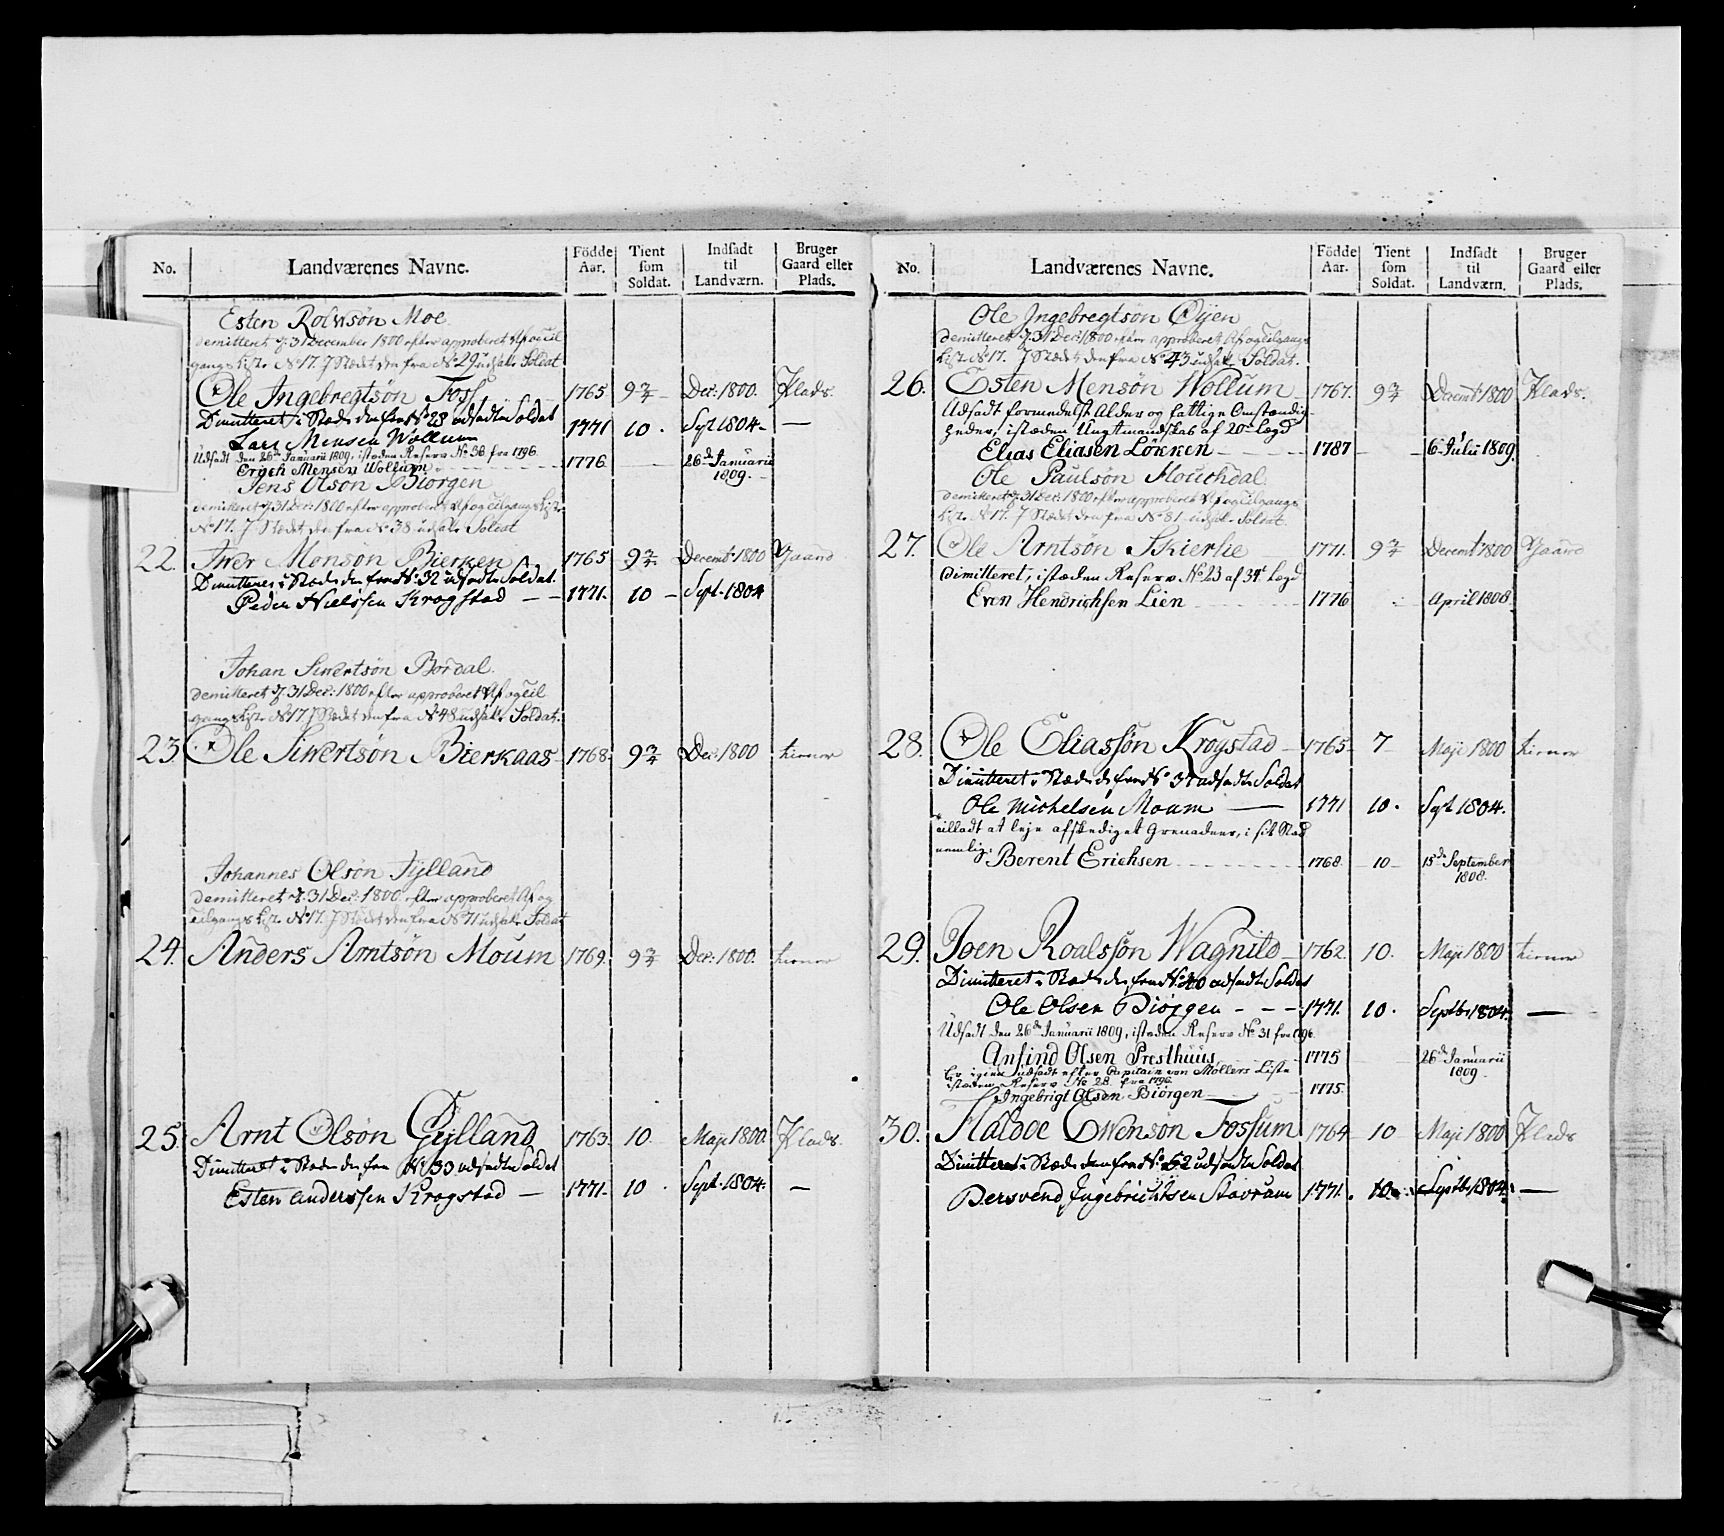 No. Landværenes Navne. Fødde Aar. Tient som Soldat. Indsadt til Landværn. Bruger Gaard eller Plads.
Esten Rolvsøn Moe
demitteret d. 31 December 1800 efter approberet Af og til
gangs Liste No 17. I Stædet den fra No 29 udsatte Soldat
Ole Ingebregtsøn Fos 1765 9 3/4 Dec: 1800. Plads.
Dimitteret i Stæde den fra No 28 udsadte Soldat
Lars Monsen Wollum 1771 10. Sept 1804 —
Udsadt den 26de Januarii 1809, isteden Reserv No 36 fra 1796.
Erich Mensen Wollum 1776 26de Januarii 1809.
Jens Olsøn Biørgen
demitteret d. 31 Dec: 1800 efter approberet Af og tilgangs Liste
No 17. I Stædet den fra No 38 udsatte Soldat
22. Iver Monsøn Bierken 1765 9 3/4 Decembr 1800 Gaard
Dimitteret i Stæde den fra No 32 udsadte Soldat.
Peder Nielssen Krogstad — 1771. 10 — Sept. 1804
Johan Sivertsøn Bordal.
demitteret d. 31 Dec: 1800 efter approberet Af og til
gangs Liste No 17 I Stædet den fra No 48 udsatte Soldat.
23. Ole Sivertsøn Bierkaas 1768. 9 3/4 Dec: 1800
Johannes Olsøn Fylland
demitteret d. 31 Dec: 1800 efter approberet Af og
tilgangs Liste No 17. I Stædet den fra No 71 udsatte Soldat
24. Anders Arntsøn Moum 1769. 9 3/4 Dec: 1800.
25. Arnt Olsøn Gylland 1763. 10 Maji 1800. Plads.
Dimitteret i Stæde den fra No 33 udsadte Soldat
Esten Anderssen Krogstad — 1771. 10. Sept. 1804. —
No. Landværenes Navne. Fødde Aar. Tient som Soldat. Indsadt til Landværn. Bruger Gaard eller Plads.
Ole Ingebregtsøn Øyen
demitteret d. 31 Dec: 1800 efter approberet Af og tilgangs
Liste No 17. I Stædet den fra No 43 udsatte Soldat.
26. Esten Mensøn Wollum 1767. 9 3/4 Decembr 1800 Plads.
Udsadt formedelst Alder og fattige Omstændig
heder, isteden Ungtmandskab af 20de Lægd
Elias Eliasen Løkken 1787 6 Julii 1809.
Ole Paulsøn Houchdal
demitteret d. 31 Dec: 1800 efter approberet Af og tilgangs
Liste No 17. I Stædet den fra No 81 udsatte Soldat.
27. Ole Arntsøn Skierlie 1771. 9 3/4 Decembr 1800 Gaard
dimitteret, isteden Reserv No 23 af 34t Lægd
Even Hendrichsen Lien 1776 April 1808
28. Ole Eliassøn Krogstad 1765 7 Maji 1800
Dimitteret i Stæde d. fra No 37 udsadte Soldat
Ole Michelsen Moum — 1771 10. Sept 1804.
tilladt at leje afskediget Grenadeer, i sit Stæd
nemlig: Berent Erichsen 1768. 10 15de September 1808.
29. Joen Roalssøn Wagnild 1762. 10. Maji 1800
Dimitteret i Stæde den fra No 40 udsadte Soldat
Ole Olsen Biørgen 1771. 10. Septbr 1804. —
Udsadt den 26de Januarii 1809, isteden Reserv No 31 fra 1796.
Anfind Olsen Presthuus 1775 26de Januarii 1809
Er igien udsadt efter Capitain von Møllers Liste
isteden Reserv No 28 fra 1796.
Ingebrigt Olsen Biørgen 1775.
30. Haldoe Ewensøn Fossum 1764 10 Maji 1800 Plads
Dimitteret i Stæde den fra No 62 udsadte Soldat
Persvend Ingebrichtsen Stavrum 1771. 10. Septbr 1804. —